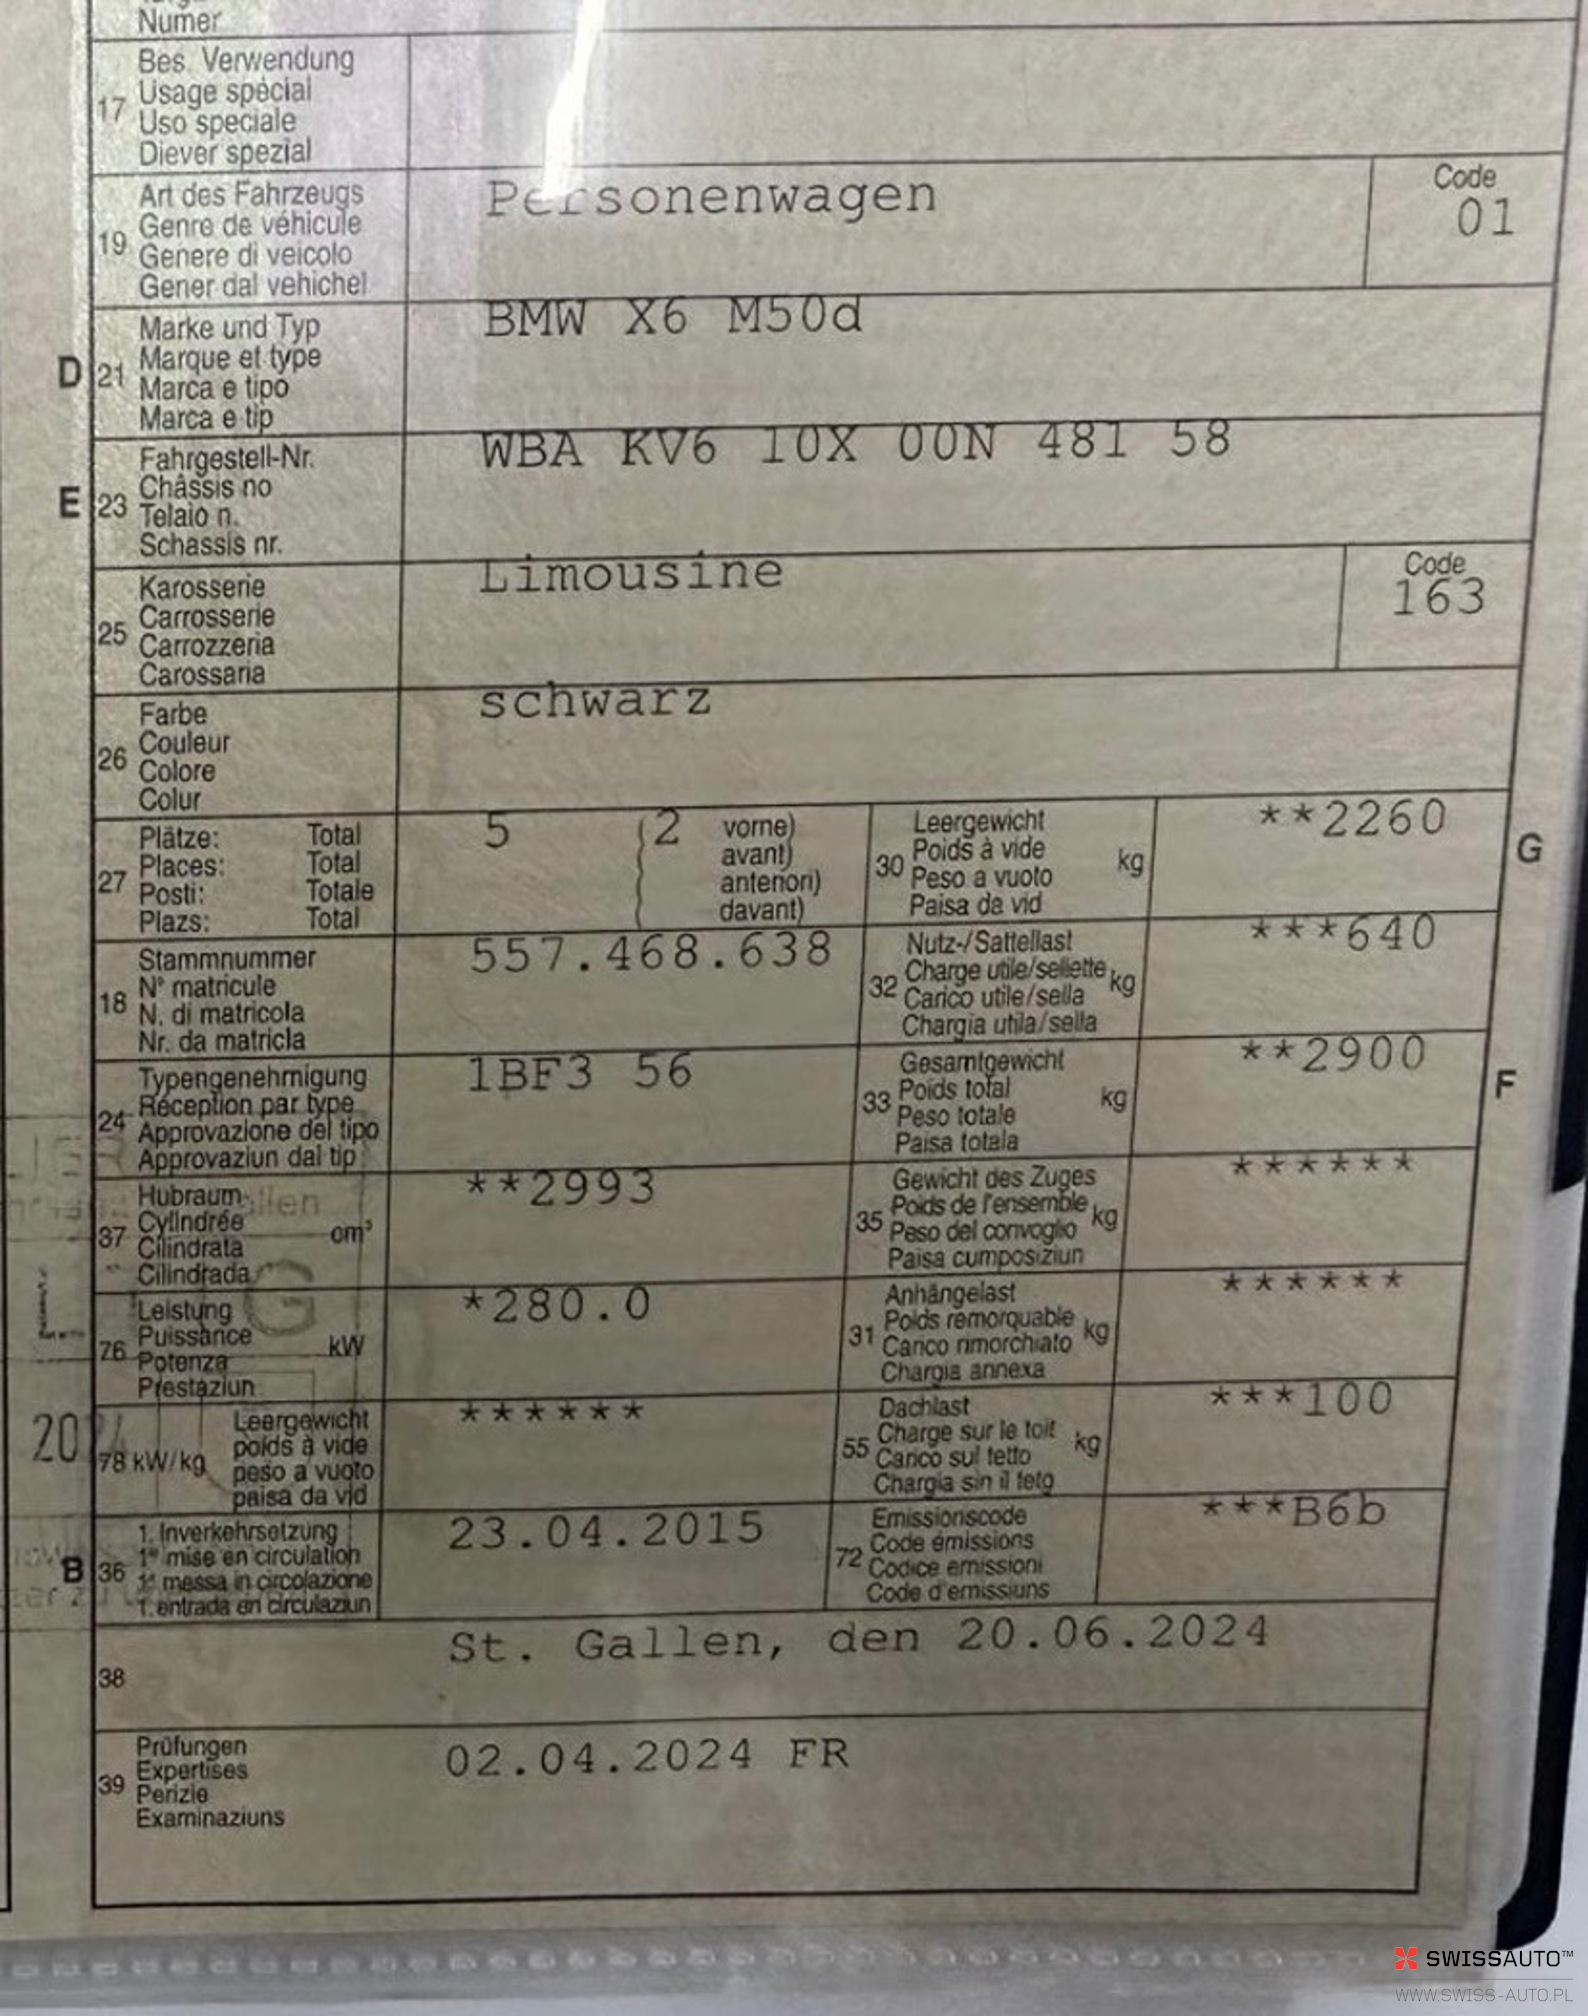 Numer
17 Bes. Verwendung
Usage spécial
Uso speciale
Diever spezial
19 Art des Fahrzeugs
Genre de véhicule
Genere di veicolo
Gener dal vehichel
Personenwagen
Code
01
D 21 Marke und Typ
Marque et type
Marca e tipo
Marca e tip
BMW X6 M50d
E 23 Fahrgestell-Nr.
Châssis no
Telaio n.
Schassis nr.
WBA KV6 10X 00N 481 58
25 Karosserie
Carrosserie
Carrozzeria
Carossaria
Limousine
Code
163
26 Farbe
Couleur
Colore
Colur
schwarz
27 Plätze: Total
Places: Total
Posti: Totale
Plazs: Total
5 (2 vorne)
avant)
anteriori)
davant)
30 Leergewicht
Poids à vide
Peso a vuoto
Paisa da vid
kg
**2260
G
18 Stammnummer
N° matricule
N. di matricola
Nr. da matricla
557.468.638
32 Nutz-/Sattellast
Charge utile/sellette
Carico utile/sella
Chargia utila/sella
kg
***640
24 Typengenehmigung
Réception par type
Approvazione del tipo
Approvaziun dal tip
1BF3 56
33 Gesamtgewicht
Poids total
Peso totale
Paisa totala
kg
**2900
F
37 Hubraum
Cylindrée
Cilindrata
Cilindrada
cm³
**2993
35 Gewicht des Zuges
Poids de l'ensemble
Peso del convoglio
Paisa cumposiziun
kg
******
76 Leistung
Puissance
Potenza
Prestaziun
kW
*280.0
31 Anhängelast
Poids remorquable
Carico rimorchiato
Chargia annexa
kg
******
78 kW/kg
Leergewicht
poids à vide
peso a vuoto
paisa da vid
******
55 Dachlast
Charge sur le toit
Carico sul tetto
Chargia sin il tetg
kg
***100
B 36 1. Inverkehrsetzung
1re mise en circulation
1a messa in circolazione
1. entrada en circulaziun
23.04.2015
72 Emissionscode
Code émissions
Codice emissioni
Code d'emissiuns
***B6b
38
St. Gallen, den 20.06.2024
39 Prüfungen
Expertises
Perizie
Examinaziuns
02.04.2024 FR
SWISSAUTO™
WWW.SWISS-AUTO.PL